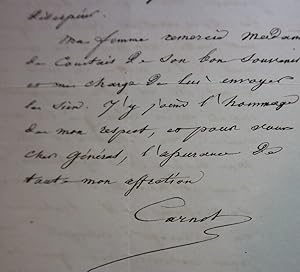 Ma femme remercie Madame
de Courtais de son bon souvenir
et me charge de lui envoyer
le sien. J'y joins l'hommage
de mon respect, et pour vous
cher Général, l'assurance de
toute mon affection
Carnot